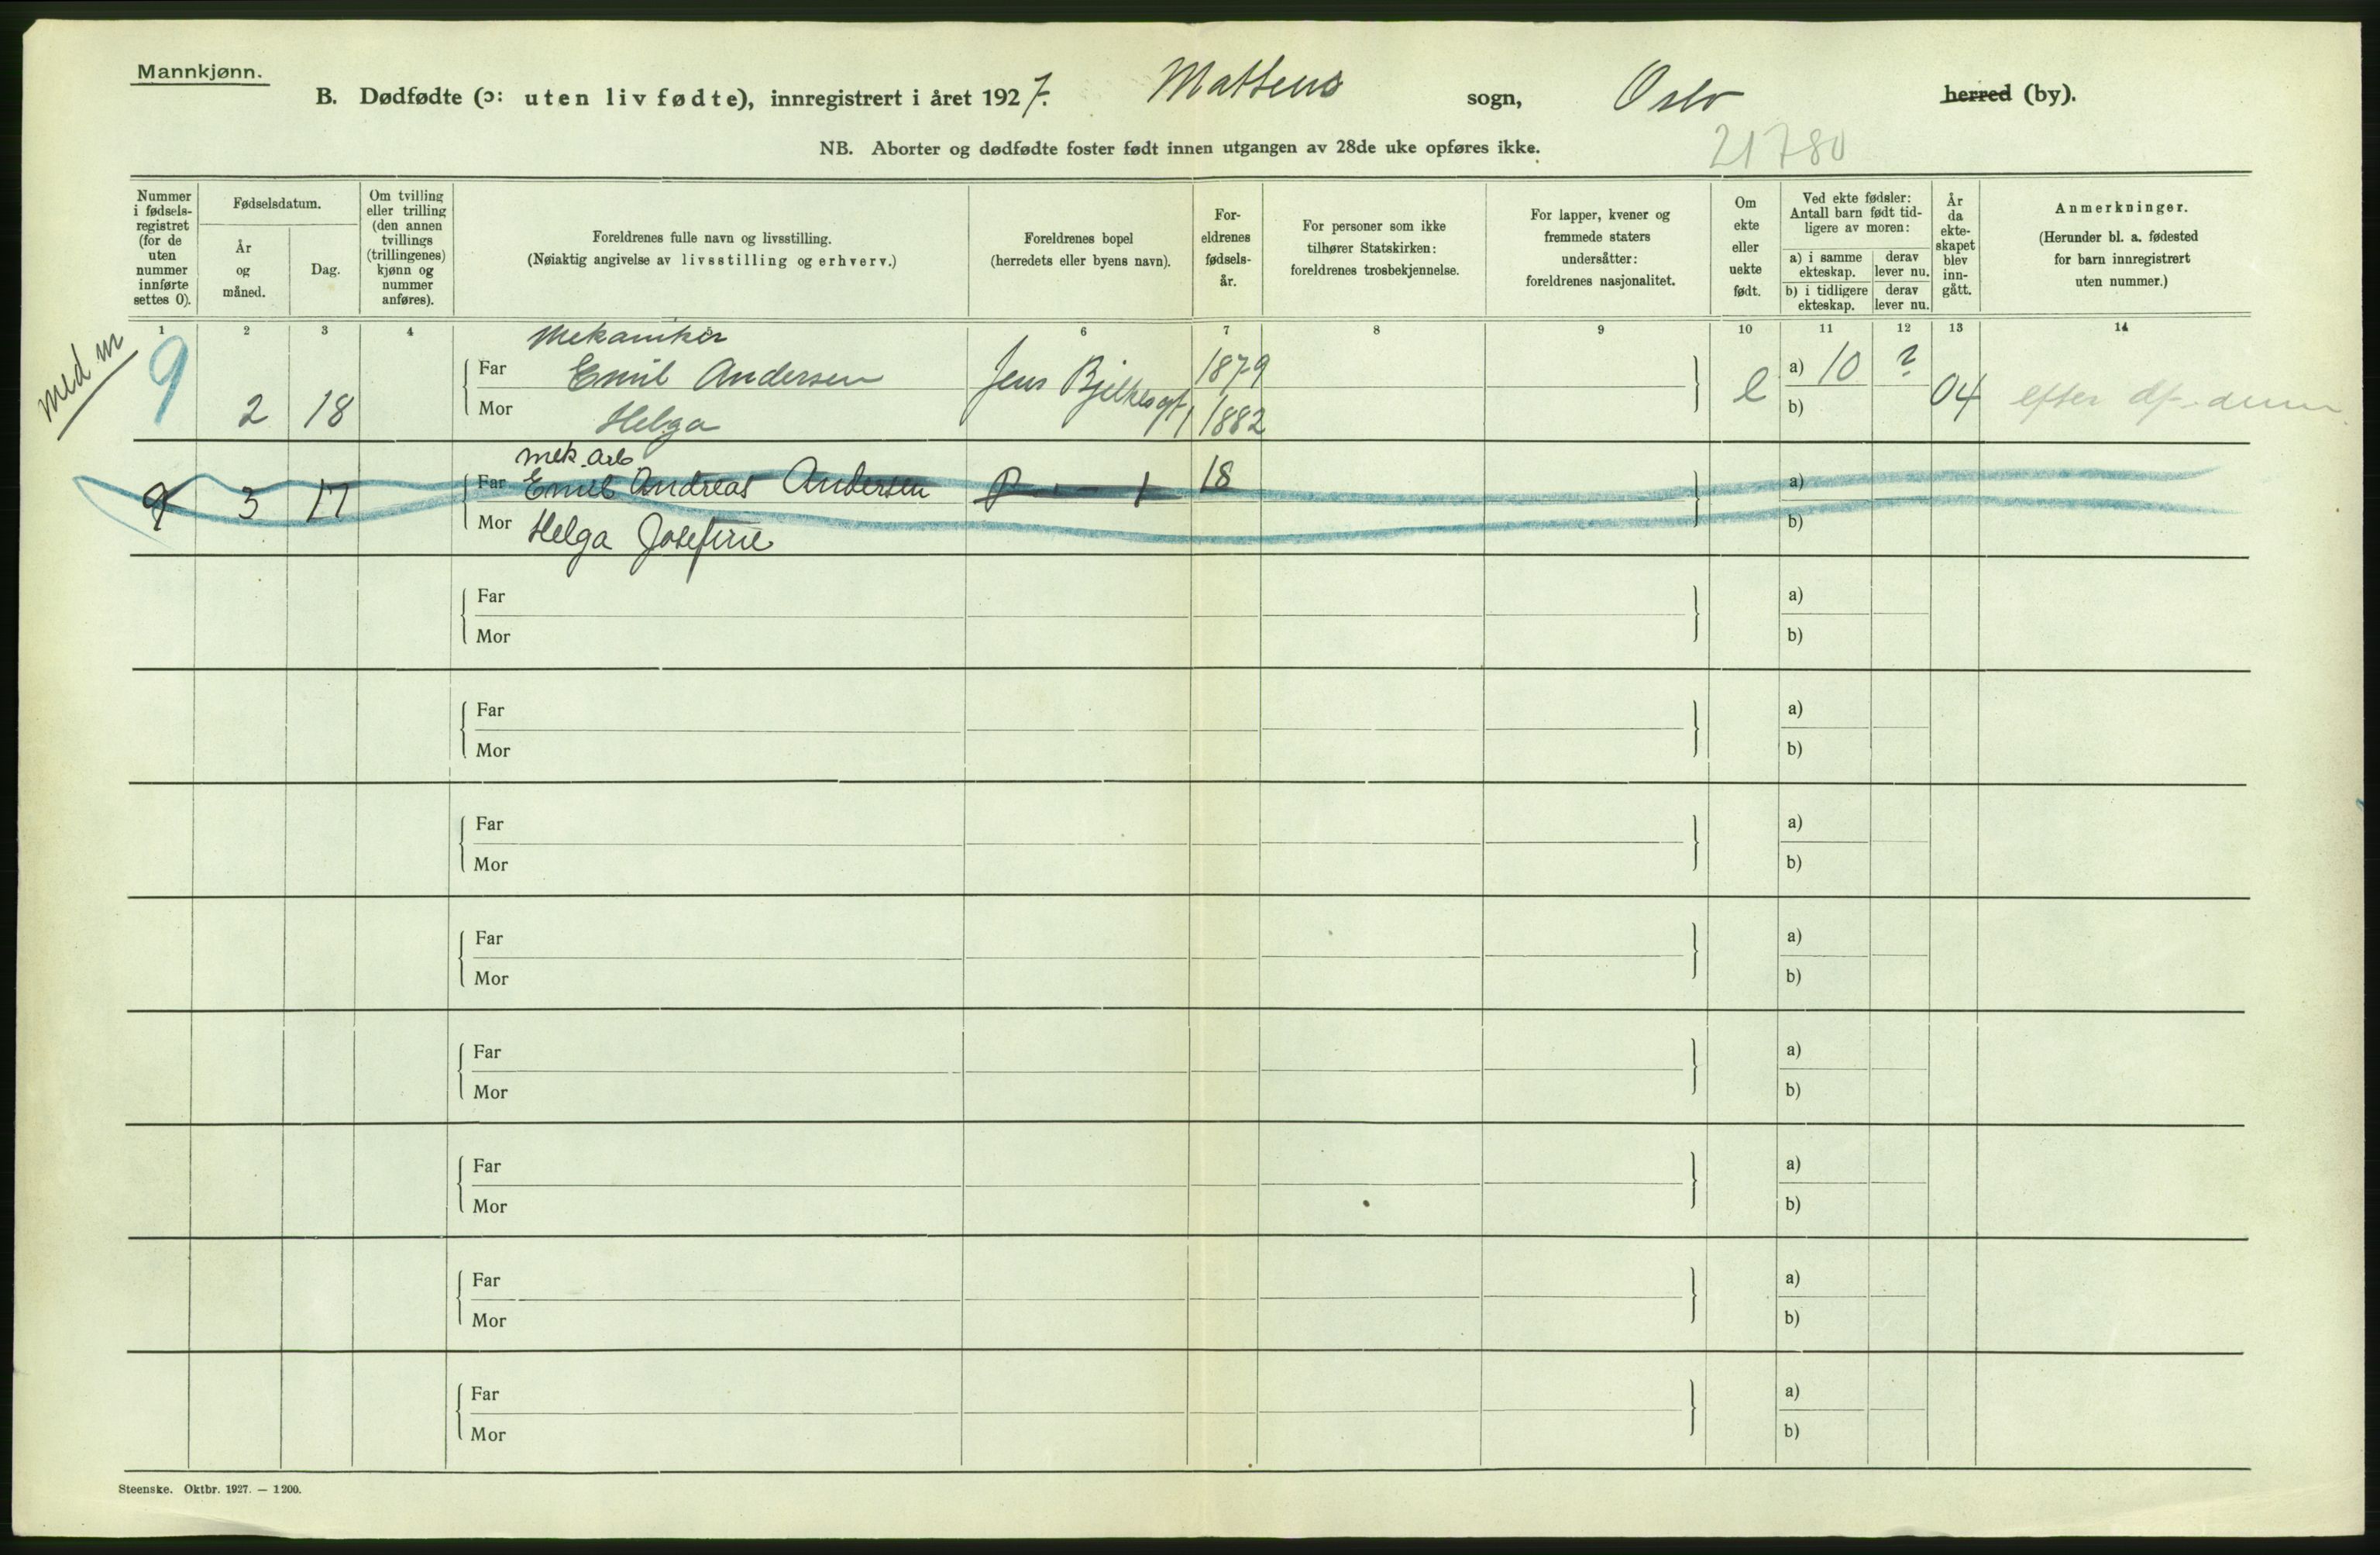 Mannkjønn.
B. Dødfødte (ɔ: uten liv fødte), innregistrert i året 1927. Matteus sogn, Oslo herred (by).
21780
NB. Aborter og dødfødte foster født innen utgangen av 28de uke opføres ikke.
Nummer i fødsels-registret (for de uten nummer innførte settes 0).
Fødselsdatum.
År og måned.
Dag.
Om tvilling eller trilling (den annen tvillings (trillingenes) kjønn og nummer anføres).
Foreldrenes fulle navn og livsstilling.
(Nøiaktig angivelse av livsstilling og erhverv.)
Foreldrenes bopel
(herredets eller byens navn).
For-eldrenes fødsels-år.
For personer som ikke tilhører Statskirken: foreldrenes trosbekjennelse.
For lapper, kvener og fremmede staters undersåtter: foreldrenes nasjonalitet.
Om ekte eller uekte født.
Ved ekte fødsler: Antall barn født tid-ligere av moren:
a) i samme ekteskap.
derav lever nu.
b) i tidligere ekteskap.
derav lever nu.
År da ekte-skapet blev inn-gått.
Anmerkninger.
(Herunder bl. a. fødested for barn innregistrert uten nummer.)
1 2 3 4 6 7 8 9 10 11 12 13 14
med m
Mekaniker
9 2 18 Far Emil Andersen Jens Bjelkesgt 1 1879 e a) 10 ? 04 efter df. denne
Mor Helga 1882 b)
mek. arb
9 3 17 Far Emil Andreas Andersen 18 a)
Mor Helga Josefine b)
Far a)
Mor b)
Far a)
Mor b)
Far a)
Mor b)
Far a)
Mor b)
Far a)
Mor b)
Far a)
Mor b)
Far a)
Mor b)
Far a)
Mor b)
Steenske. Oktbr. 1927. — 1200.